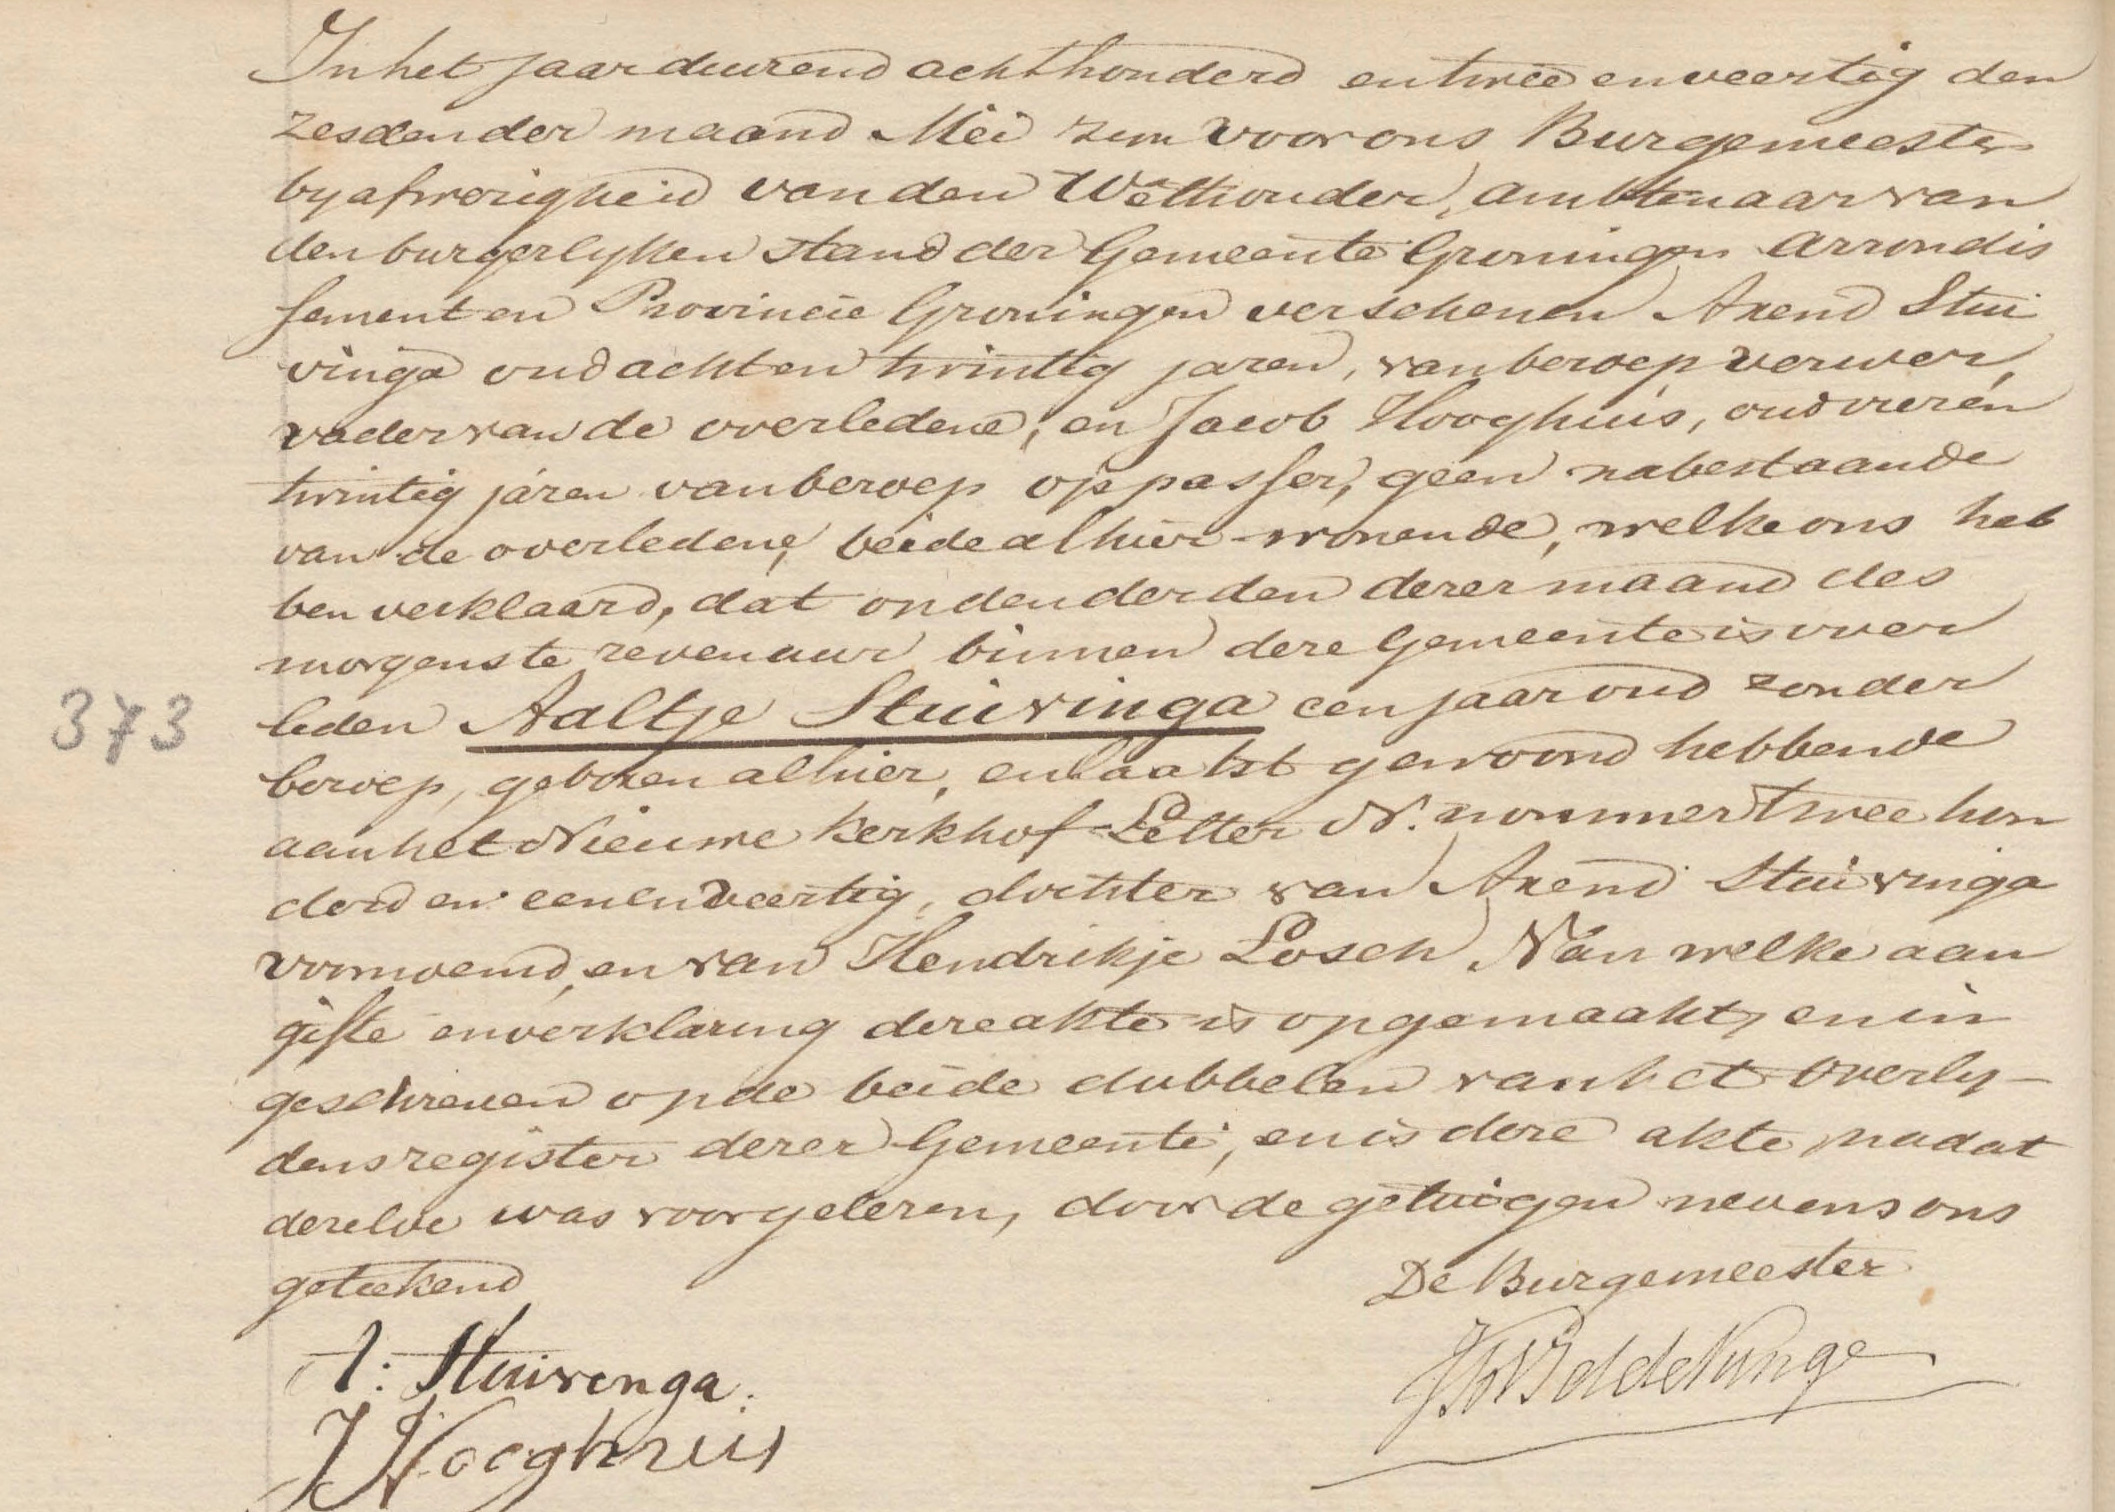 In het jaar duizend achthonderd en twee en veertig den
zesden der maand Mei zyn voor ons Burgemeester
by afwezigheid van den Wethouder, ambtenaar van
den burgerlyken stand der Gemeente Groningen Arrondis
sement en Provincie Groningen verschenen Arend Stui
vinga oud acht en twintig jaren, van beroep verwer,
vader van de overledene, en Jacob Hooghuis, oud vier en
twintig jaren van beroep oppasser, geen nabestaande
van de overledene, beide alhier wonende, welke ons heb
ben verklaard, dat op den derden dezer maand des
morgens te zeven uur binnen deze Gemeente is over
373 leden Aaltje Stuivinga een jaar oud zonder
beroep, geboren alhier, en laatst gewoond hebbende
aan het Nieuwe Kerkhof Letter N. nommer twee hon
derd en een en veertig, dochter van Arend Stuivinga
voornoemd, en van Hendrikje Losch Van welke aan
gifte en verklaring deze akte is opgemaakt, en in
geschreven op de beide dubbelen van het overly-
dens register dezer Gemeente, en is deze akte nadat
dezelve was voorgelezen, door de getuigen nevens ons
geteekend
De Burgemeester
A: Stuivenga.
J Hooghuis